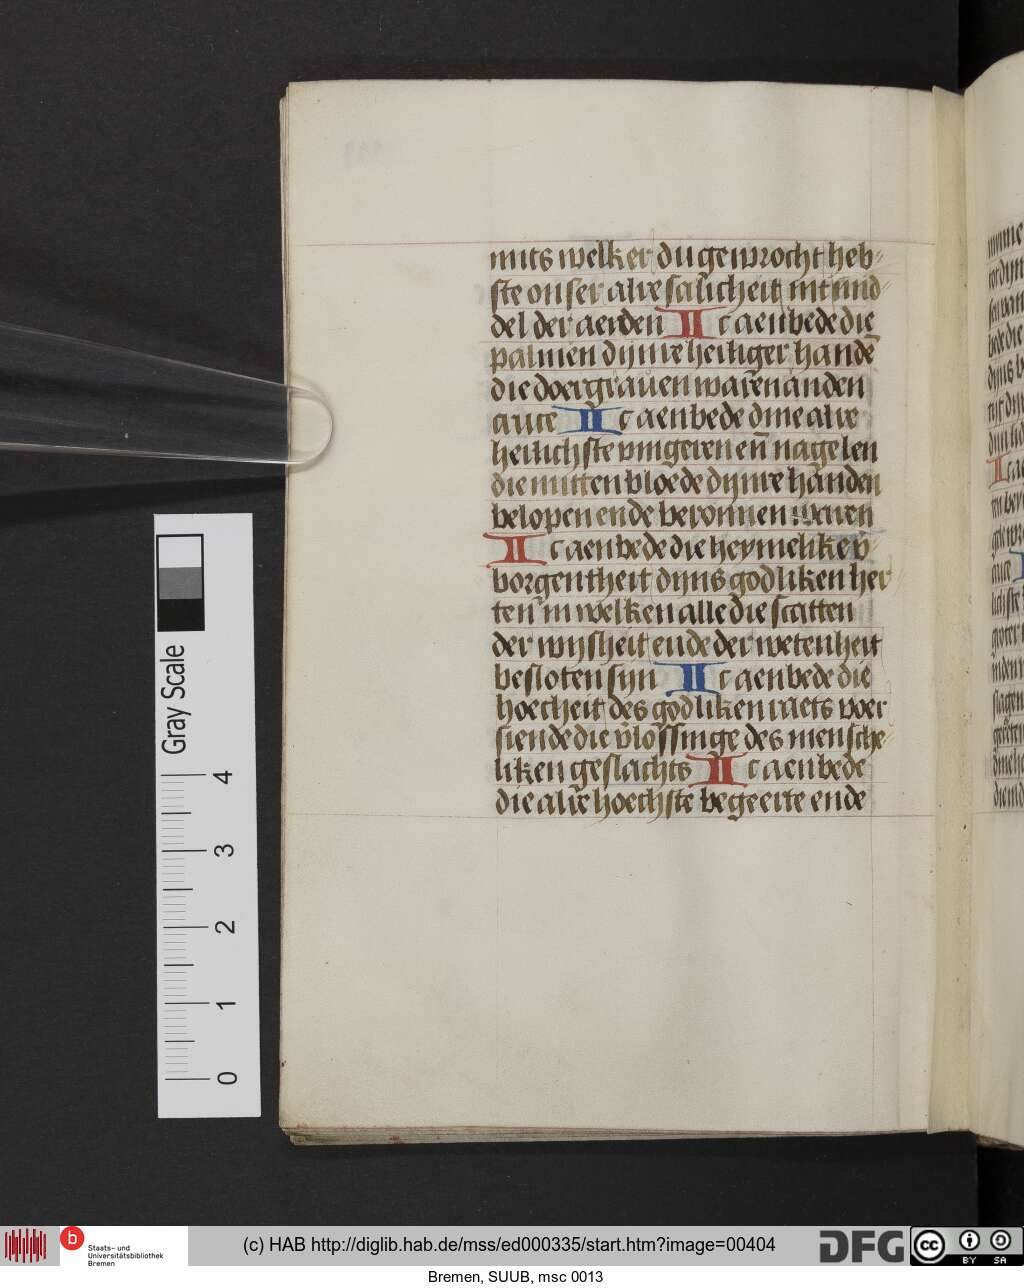 mits welker du gewrocht heb-
ste onser alre salicheit int mid-
del der aerden Ic aenbede die
palmen dijnre heiliger handē
die doergrauen warē an den
cruce Ic aenbede dine alre
heilichste vingeren eñ nagelen
die mitten bloede dijnre handen
belopen ende beronnen waren
Ic aenbede die heymelike v̄
borgentheit dijns godliken her
ten in welken alle die scatten
der wijsheit ende der wetenheit
besloten sijn Ic aenbede die
hoecheit des godliken raets voer
siende die v̄lossinge des mensche-
liken geslachts Ic aenbede
die alre hoechste begeerte ende
Gray Scale
4
3
2
1
0
b
Staats- und
Universitätsbibliothek
Bremen
(c) HAB http://diglib.hab.de/mss/ed000335/start.htm?image=00404
DFG
cc
BY SA
Bremen, SUUB, msc 0013